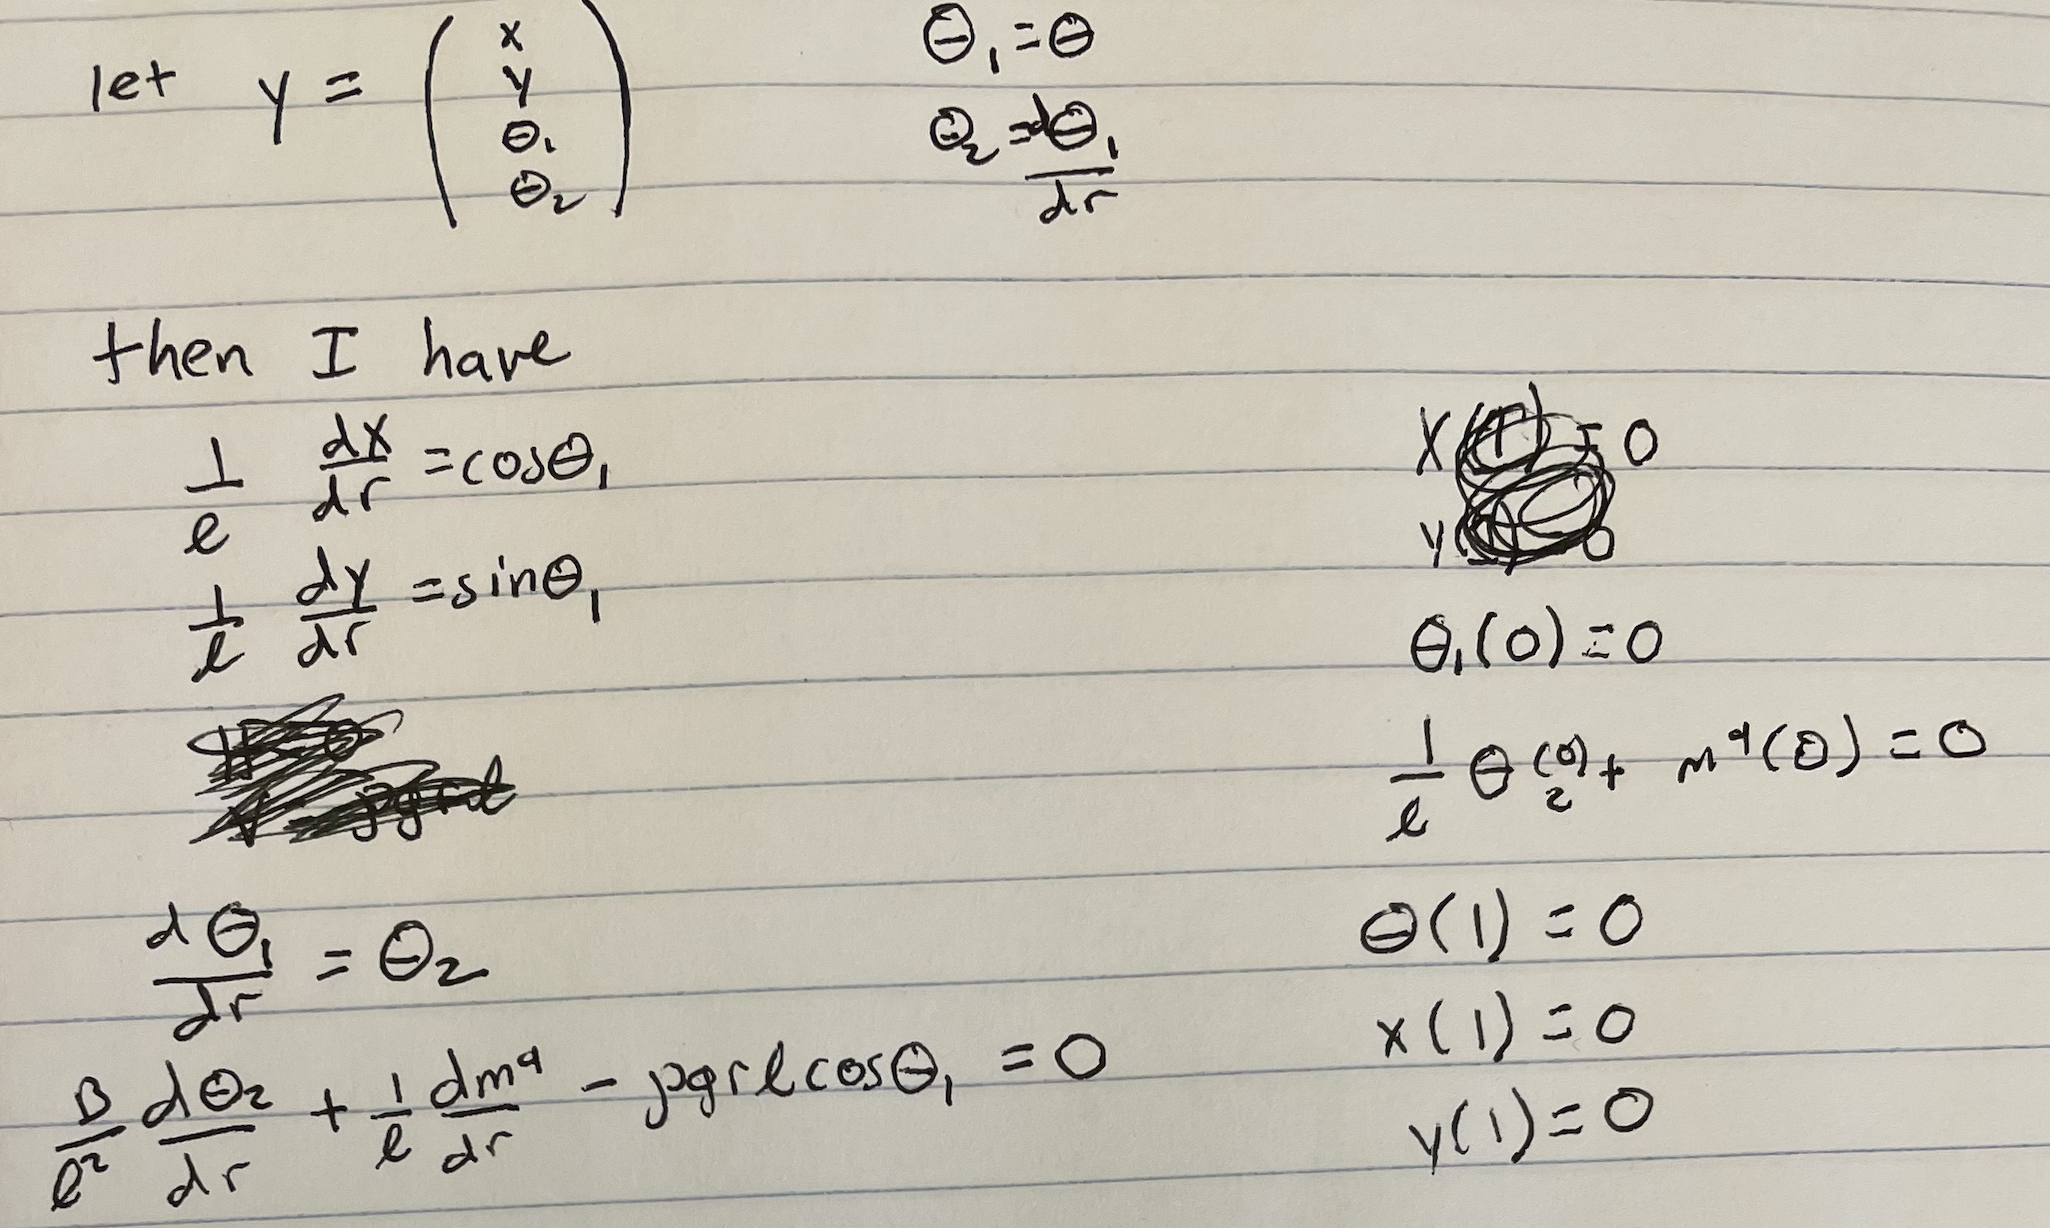 let y = ( x y θ₁ θ₂ )
θ₁ = θ
θ₂ = dθ₁/dr
then I have
1/ℓ dx/dr = cosθ₁
1/ℓ dy/dr = sinθ₁
dθ₁/dr = θ₂
B/ℓ² dθ₂/dr + 1/ℓ dmᵃ/dr - ρgrℓcosθ₁ = 0
θ₁(0) = 0
1/ℓ θ₂(0) + mᵃ(0) = 0
θ(1) = 0
x(1) = 0
y(1) = 0